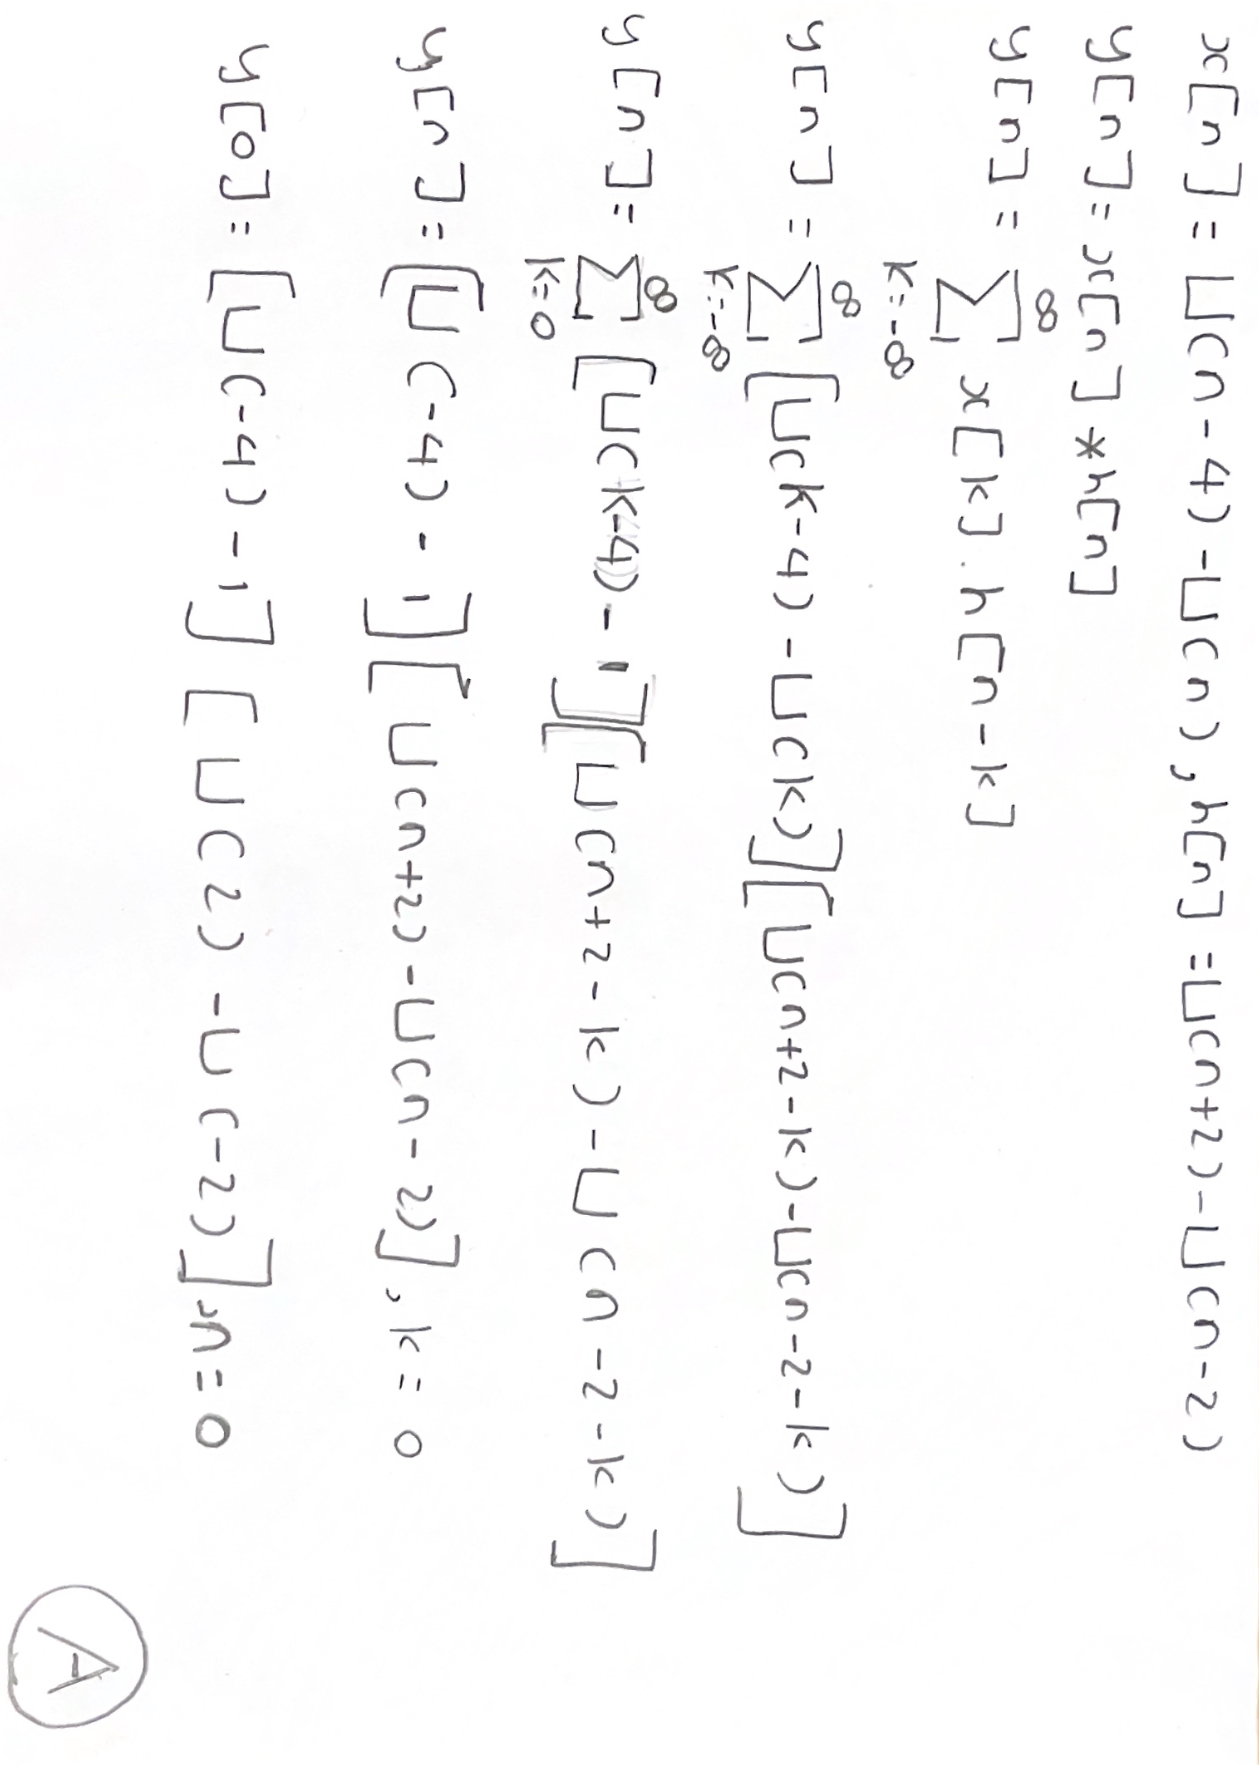 x[n] = U(n-4) - U(n), h[n] = U(n+2) - U(n-2)
y[n] = x[n] * h[n]
y[n] = ∞ Σ k=-∞ x[k] . h[n-k]
y[n] = ∞ Σ k=-∞ [U(k-4) - U(k)][U(n+2-k) - U(n-2-k)]
y[n] = ∞ Σ k=0 [U(k-4) - 1][U(n+2-k) - U(n-2-k)]
y[n] = [U(-4) - 1][U(n+2) - U(n-2)], k = 0
y[0] = [U(-4) - 1][U(2) - U(-2)], n = 0
A